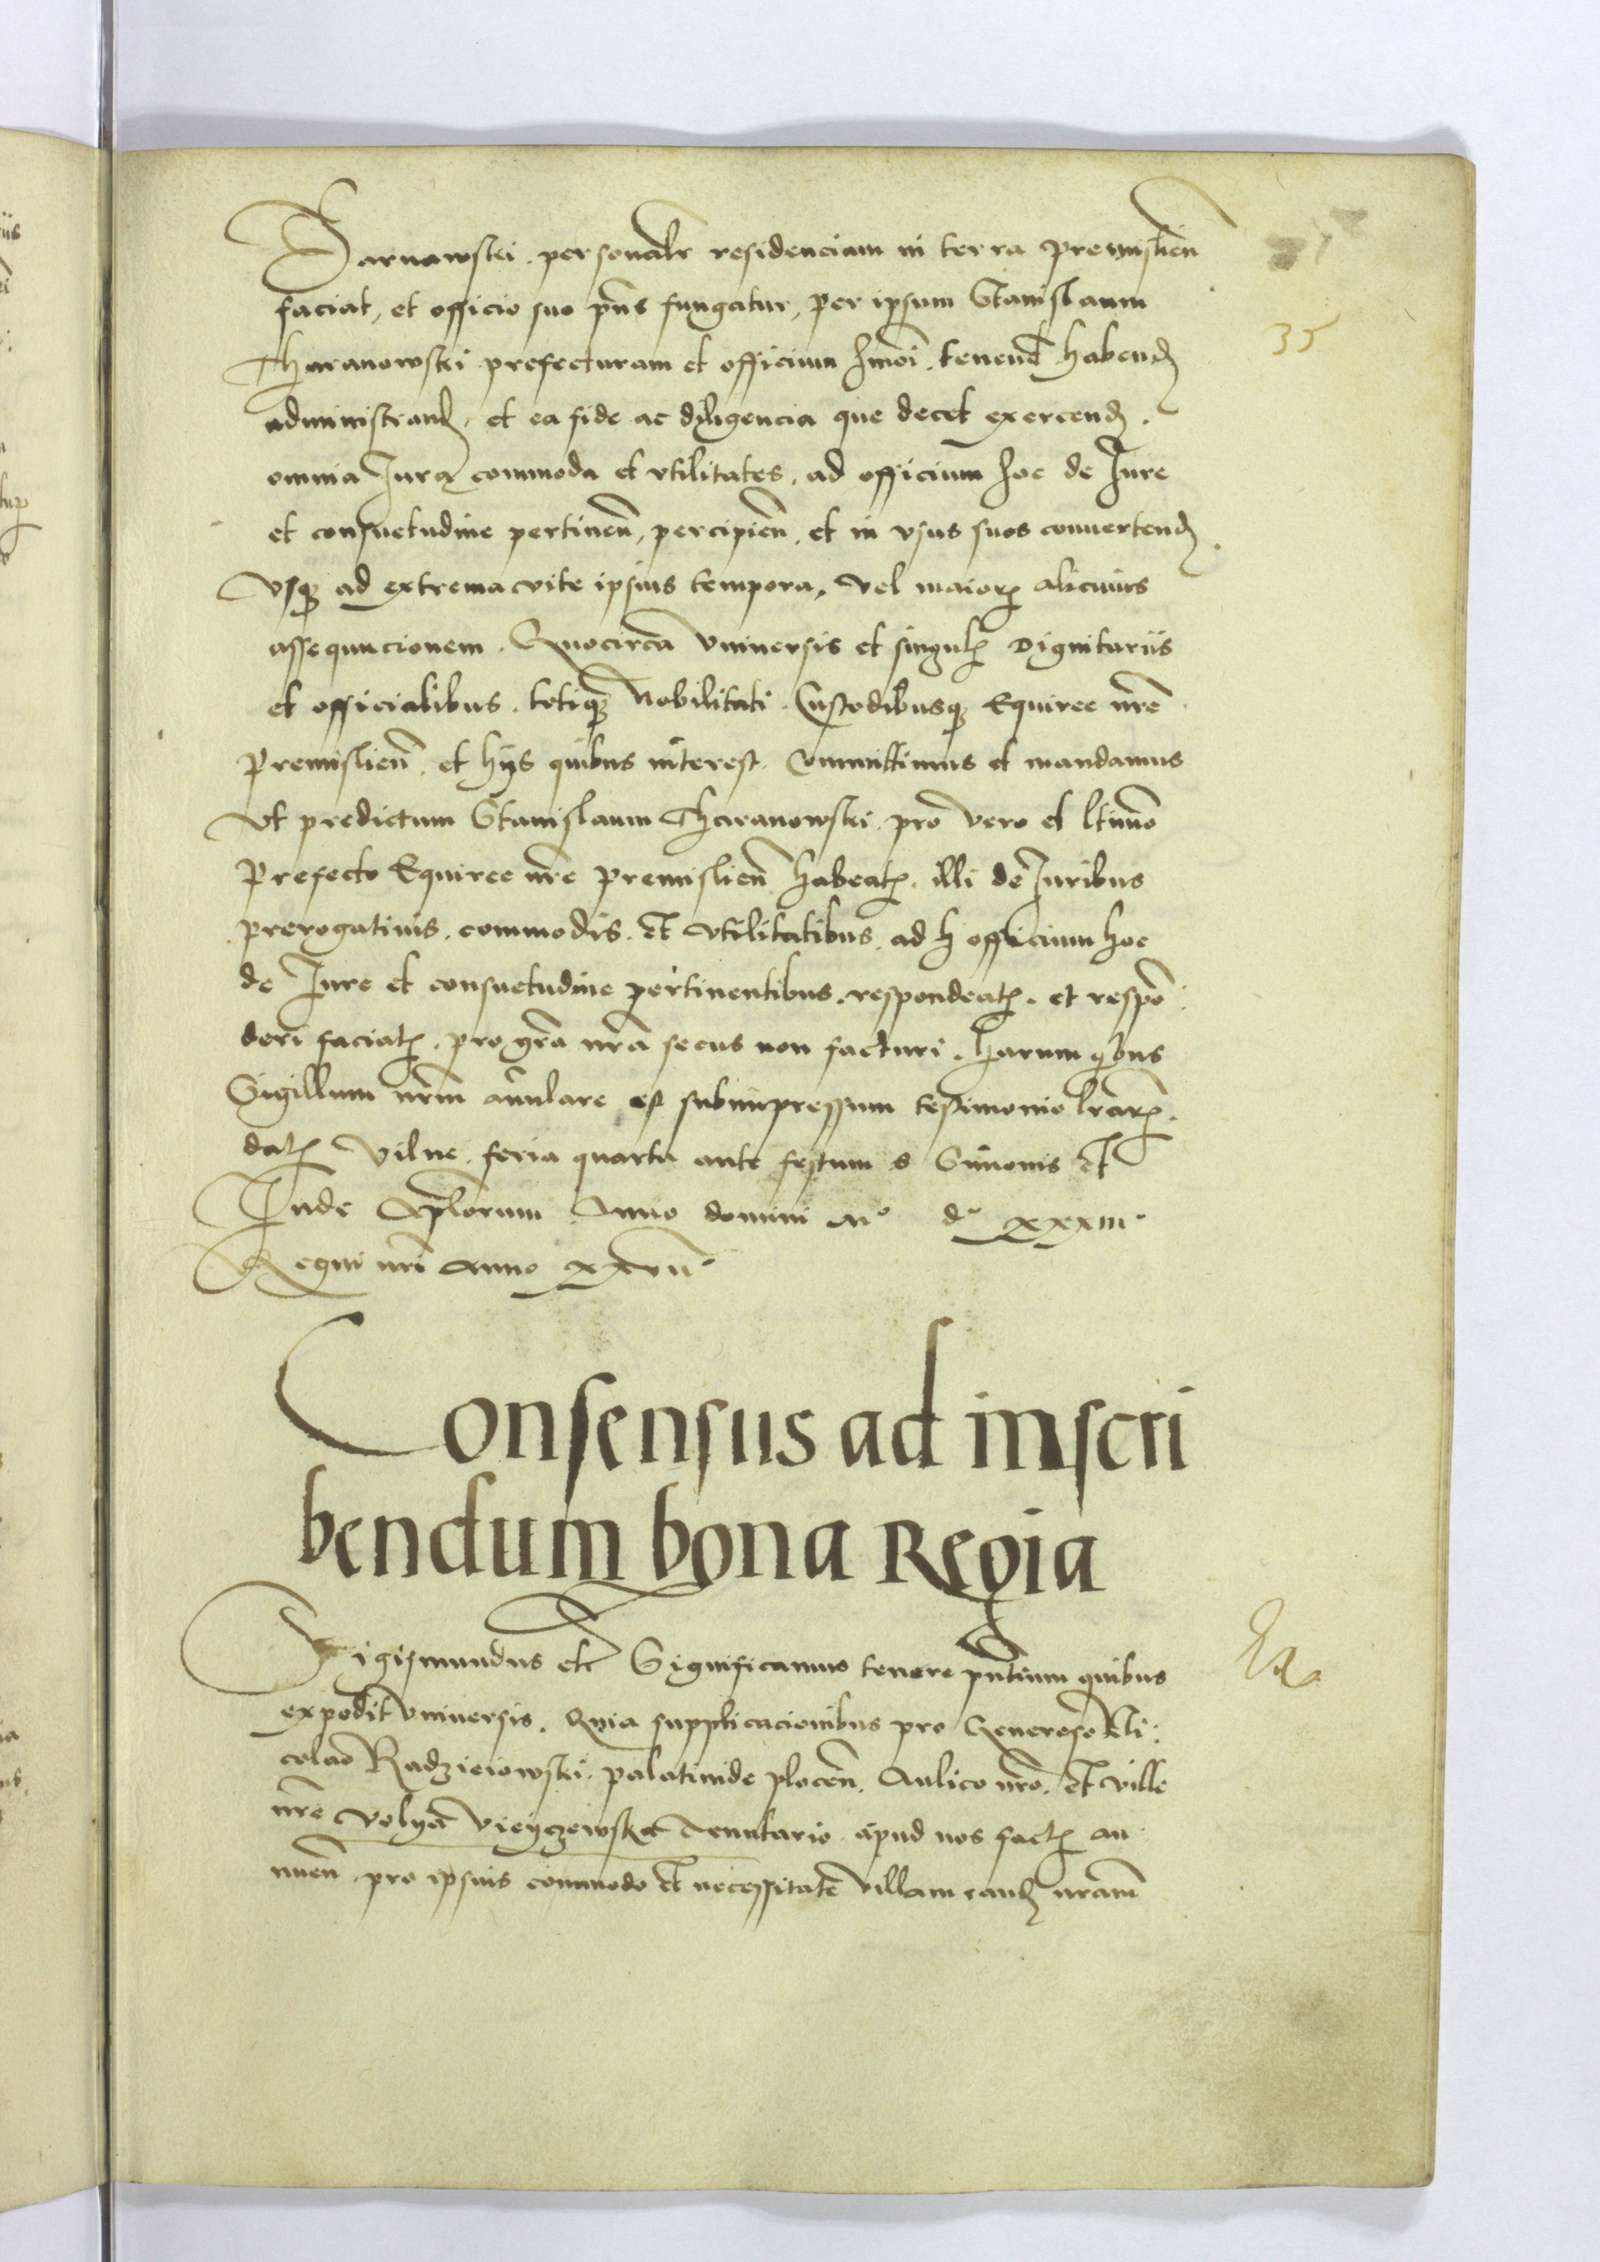 Darnawskj personalr residenciam in terra premislien
faciat, et officio suo pns fungatur, per ipsum Stanislaum
Tharanowskj prefecturam et officium hmoi tenend habend
administrand et ea fide ac diligencia que decet exercend.
omnia Iura commoda et vtilitates, ad officium hoc de Iure
et consuetudine pertinen, percipien, et in vsus suos conuertend.
vsq ad extrema vite ipsius tempora, vel maioris alicuius
assequucionem. Quocirca vniuersis et singulis Dignitariis
et officialibus, totiq Nobilitati Custodibusq Equiree nre
Premislien, et hijs quibus interest Committimus et mandamus
Vt predictum Stanislaum Tharanowskj pro vero et ltimo
Prefecto Equiree nre premislien habeatis, illi de Iuribus
prerogatiuis, commodis, et vtilitatibus, ad h officium hoc
de Iure et consuetudine pertinentibus, respondeatis, et respon
deri faciatis, pro gra nra secus non facturi, harum qbus
Sigillum nrm annulare est subimpressum testimonio lrarum.
datis Vilne feria quarta ante festum s Simonis et
Iude Aplorum Anno domini Mo do xxxiiio
Regni nri anno xxviio
Consensus ad inscri
bendum bona Regia
Sigismundus etc Significamus tenore pntium quibus
expedit vniuersis, Quia supplicacionibus pro Generoso Ni
colao Radzieiowskj palatinide plocen, Aulico nro, et ville
nre Volya Tenutario apud nos factis an
nuen pro ipsius commodo et necessitate villam eand nram
35